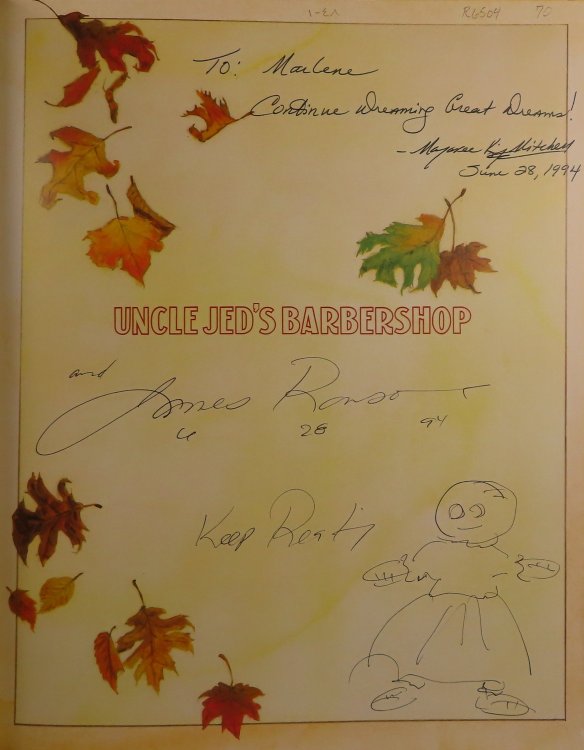 RG504 75
To: Marlene
Continue Dreaming Great Dreams!
- Margaree King Mitchell
June 28, 1994
UNCLE JED'S BARBERSHOP
and
James Ransome
6 28 94
Keep Reading